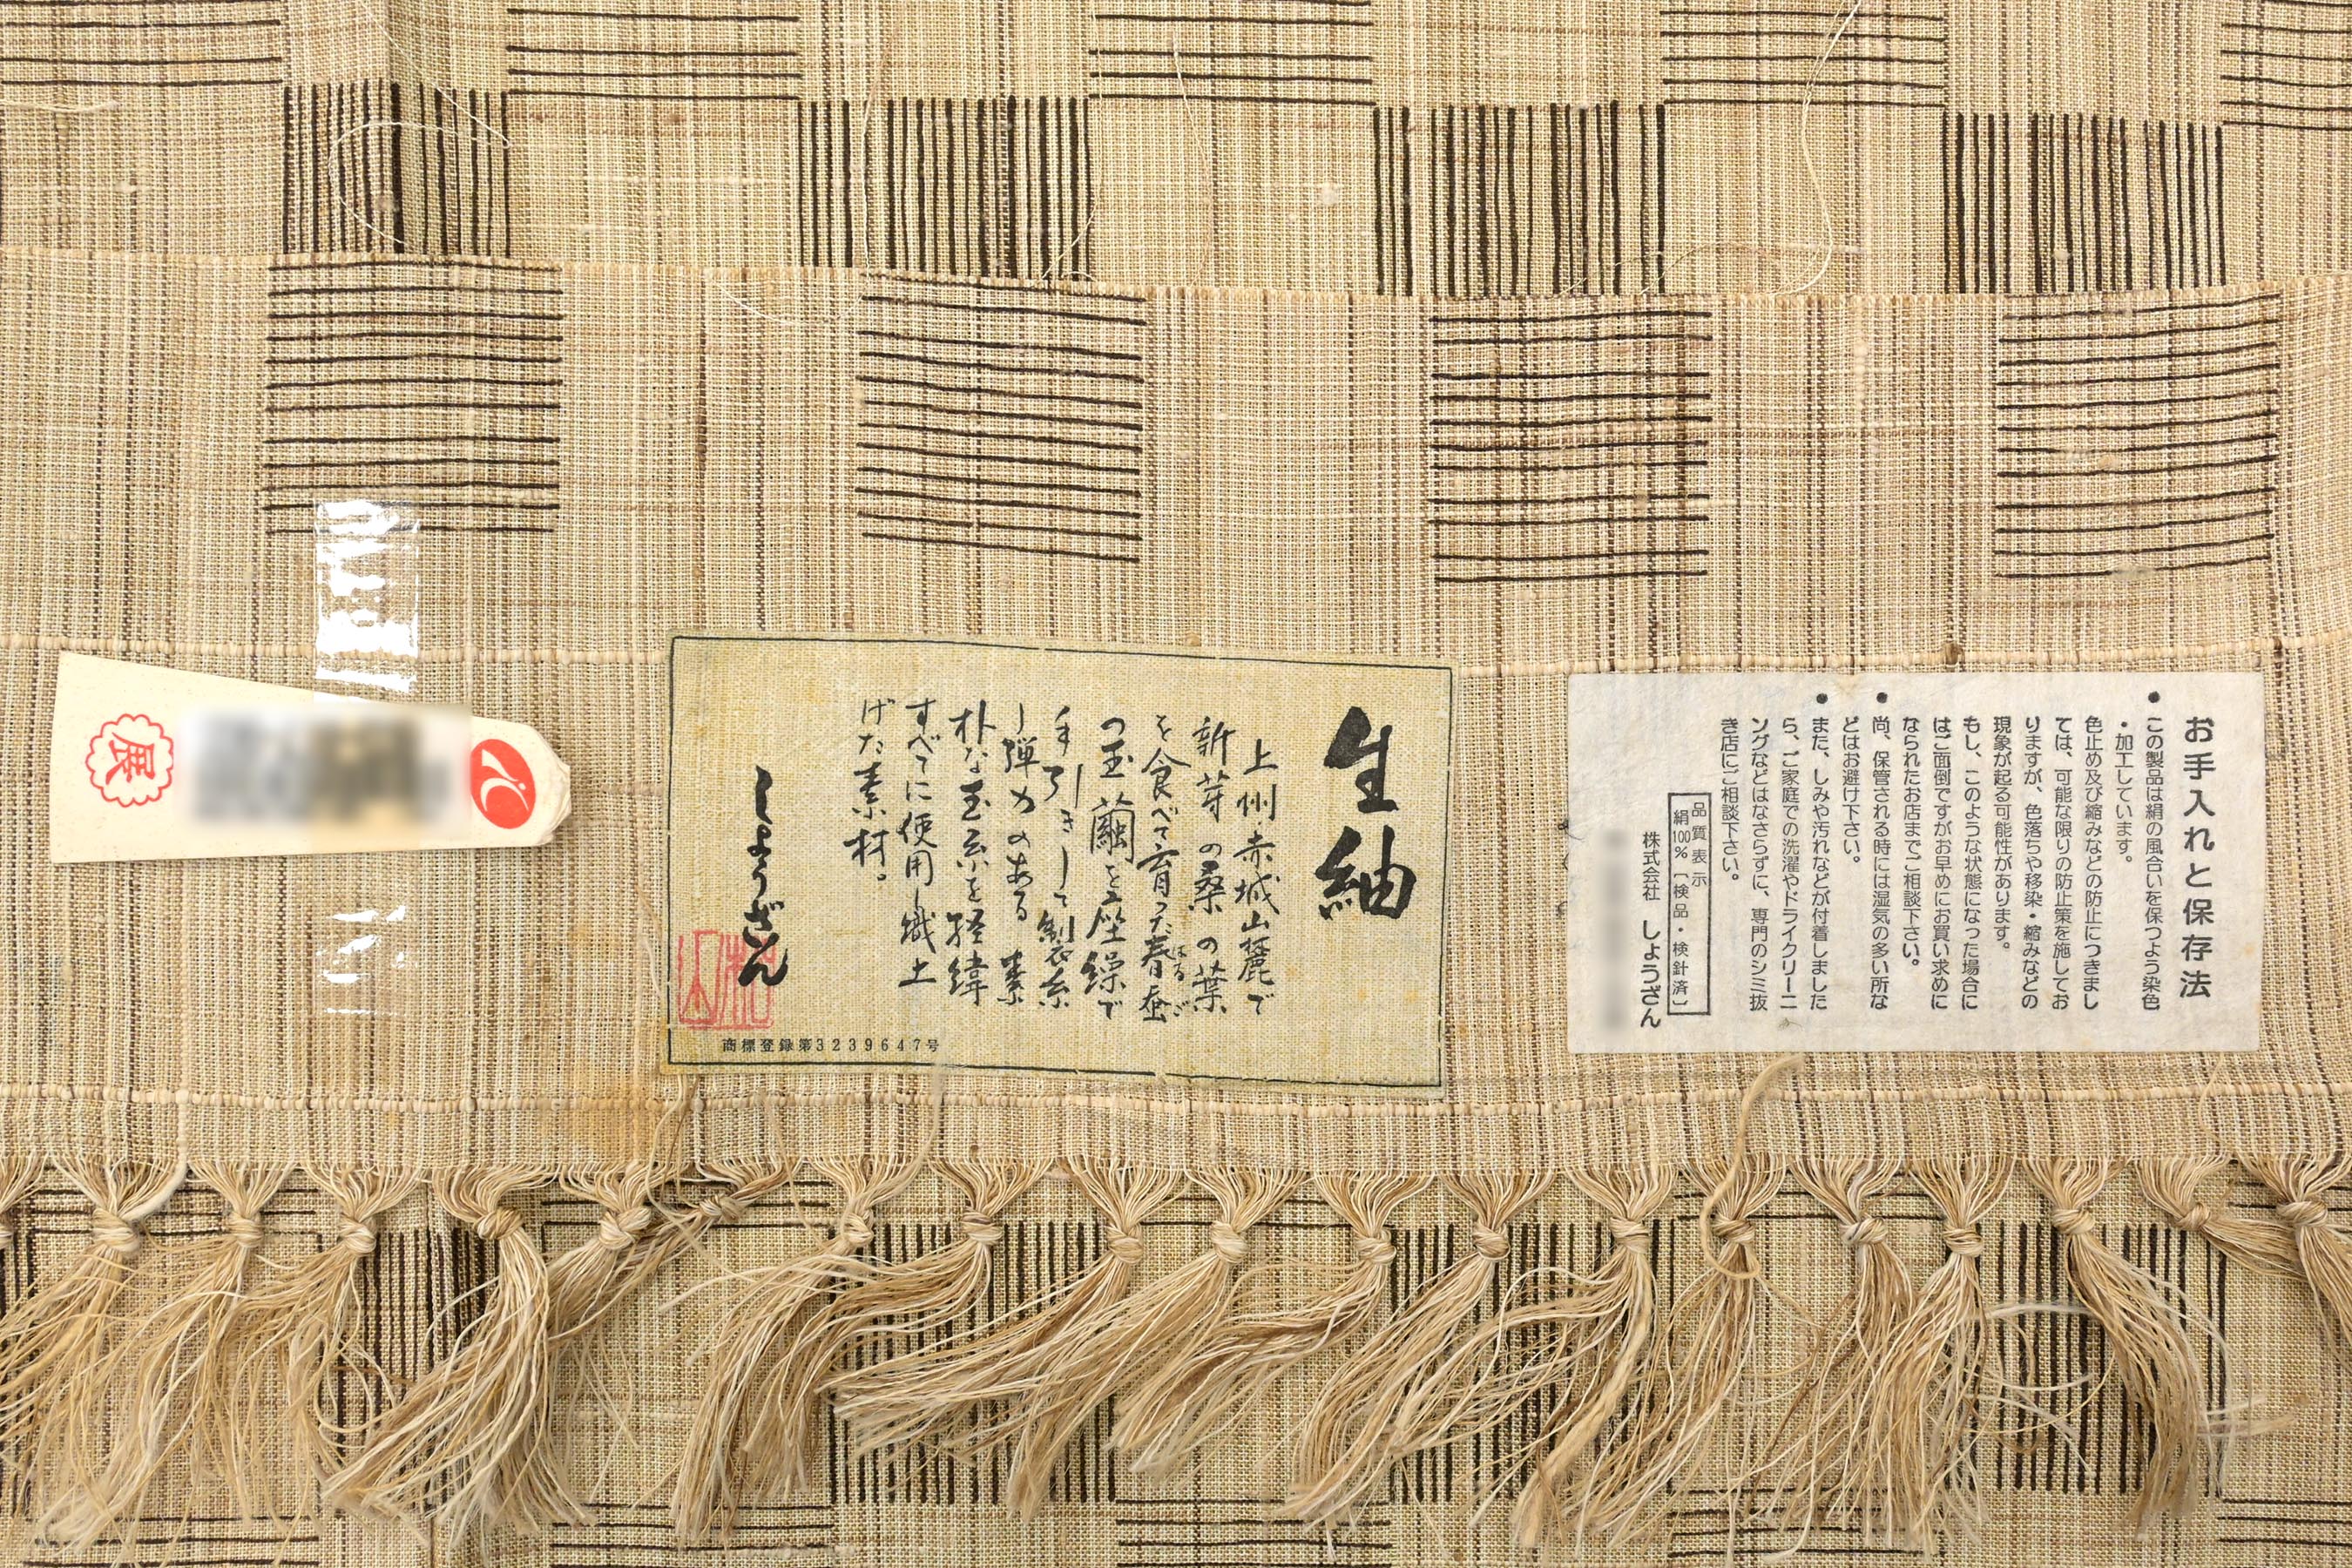 お手入れと保存法
●この製品は絹の風合いを保つよう染色
・加工しています。
色止め及び縮みなどの防止につきまし
ては、可能な限りの防止策を施してお
りますが、色落ちや移染・縮みなどの
現象が起る可能性があります。
もし、このような状態になった場合に
はご面倒ですがお早めにお買い求めに
なられたお店までご相談下さい。
●尚、保管される時には湿気の多い所な
どはお避け下さい。
●また、しみや汚れなどが付着しました
ら、ご家庭での洗濯やドライクリーニ
ングなどはなさらずに、専門のシミ抜
き店にご相談下さい。
品質表示
絹100%〔検品・検針済〕
株式会社 しょうざん
生紬
上州赤城山麓で
新芽の桑の葉
を食べて育った春蚕
はるご
の玉繭を座繰で
手引きして製糸
し弾力のある素
朴な玉糸を経緯
すべてに使用し織上
げた素材。
しょうざん
商標登録第3239647号
展